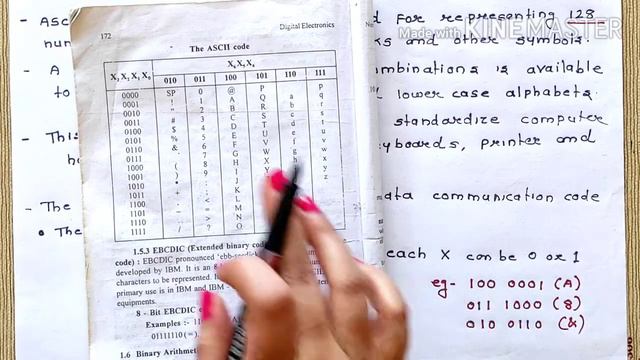 172
Digital Electronics
The ASCII code
X₆ X₅ X₄
X₃ X₂ X₁ X₀ 010 011 100 101 110 111
0000 SP 0 @ P p
0001 ! 1 A Q a q
0010 " 2 B R b r
0011 # 3 C S c s
0100 $ 4 D T d t
0101 % 5 E U e u
0110 & 6 F V f v
0111 ' 7 G W g w
1000 ( 8 H X h x
1001 ) 9 I Y y
1010 * : J z
1011 K
1100 < L
1101 = M
1110 > N
1111 / ? O
1.5.3 EBCDIC (Extended binary
code) : EBCDIC pronounced
developed by IBM. It is an
characters to be represented.
primary use is in IBM and IBM
equipments.
8 - Bit EBCDIC
Examples :
01111110 (=).
1.6 Binary
- Asc
num
- A
to
- This
ha
- The
• The
d for representing 128
ks and other symbols.
mbinations is available
lower case alphabets.
standardize computer
yboards, printer and
data communication code
each X can be 0 or 1
eg- 100 0001 (A)
011 1000 (8)
010 0110 (&)
Made with KINEMASTER